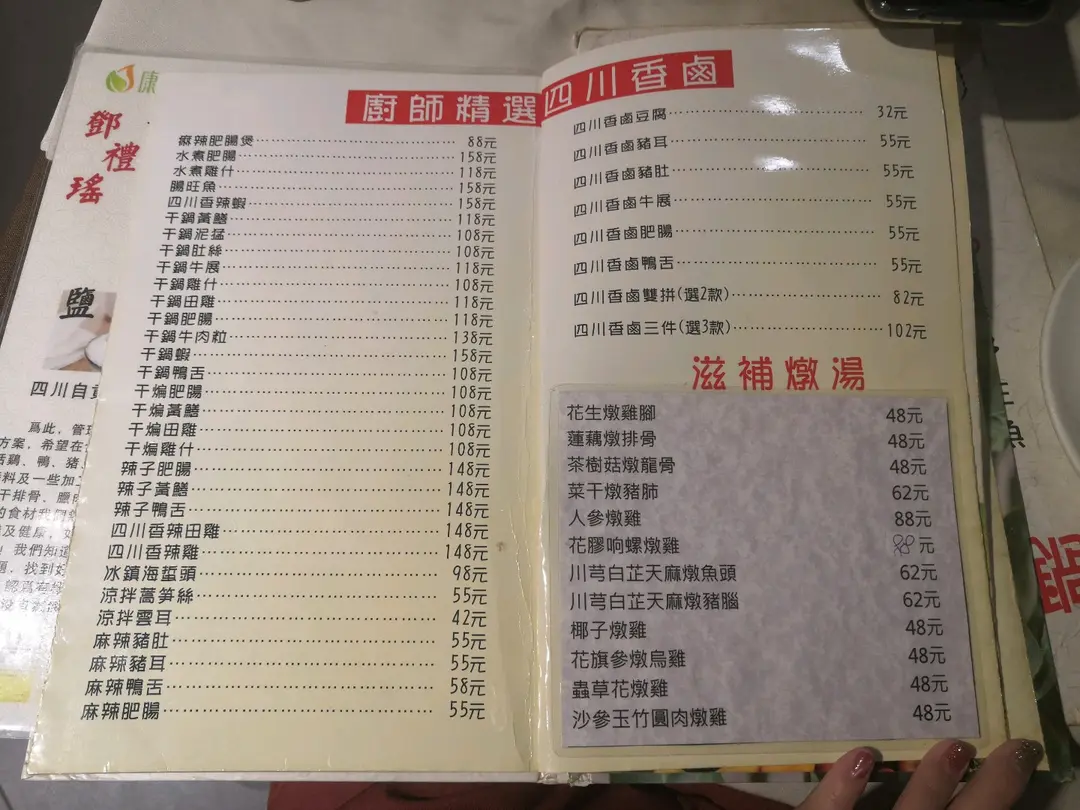 康
鄧
禮
瑤
鹽
四川自貢
爲此，管理
方案，希望在
活鷄、鴨、豬、
料及一些加工
干排骨、臘肉
的食材我們
及健康，如
！我們知道
題，找到好
廚師精選
麻辣肥腸煲 88元
水煮肥腸 158元
水煮雞什 118元
腸旺魚 158元
四川香辣蝦 158元
干鍋黃鱔 118元
干鍋泥猛 108元
干鍋肚絲 108元
干鍋牛展 118元
干鍋雞什 108元
干鍋田雞 118元
干鍋肥腸 118元
干鍋牛肉粒 138元
干鍋蝦 158元
干鍋鴨舌 108元
干煸肥腸 108元
干煸黃鱔 108元
干煸田雞 108元
干煸雞什 108元
辣子肥腸 148元
辣子黃鱔 148元
辣子鴨舌 148元
四川香辣田雞 148元
四川香辣雞 148元
冰鎮海蜇頭 98元
涼拌萵笋絲 55元
涼拌雲耳 42元
麻辣豬肚 55元
麻辣豬耳 55元
麻辣鴨舌 58元
麻辣肥腸 55元
四川香鹵
四川香鹵豆腐 32元
四川香鹵豬耳 55元
四川香鹵豬肚 55元
四川香鹵牛展 55元
四川香鹵肥腸 55元
四川香鹵鴨舌 55元
四川香鹵雙拼(選2款) 82元
四川香鹵三件(選3款) 102元
滋補燉湯
花生燉雞腳 48元
蓮藕燉排骨 48元
茶樹菇燉龍骨 48元
菜干燉豬肺 62元
人參燉雞 88元
花膠响螺燉雞 元
川芎白芷天麻燉魚頭 62元
川芎白芷天麻燉豬腦 62元
椰子燉雞 48元
花旗參燉烏雞 48元
蟲草花燉雞 48元
沙參玉竹圓肉燉雞 48元
魚